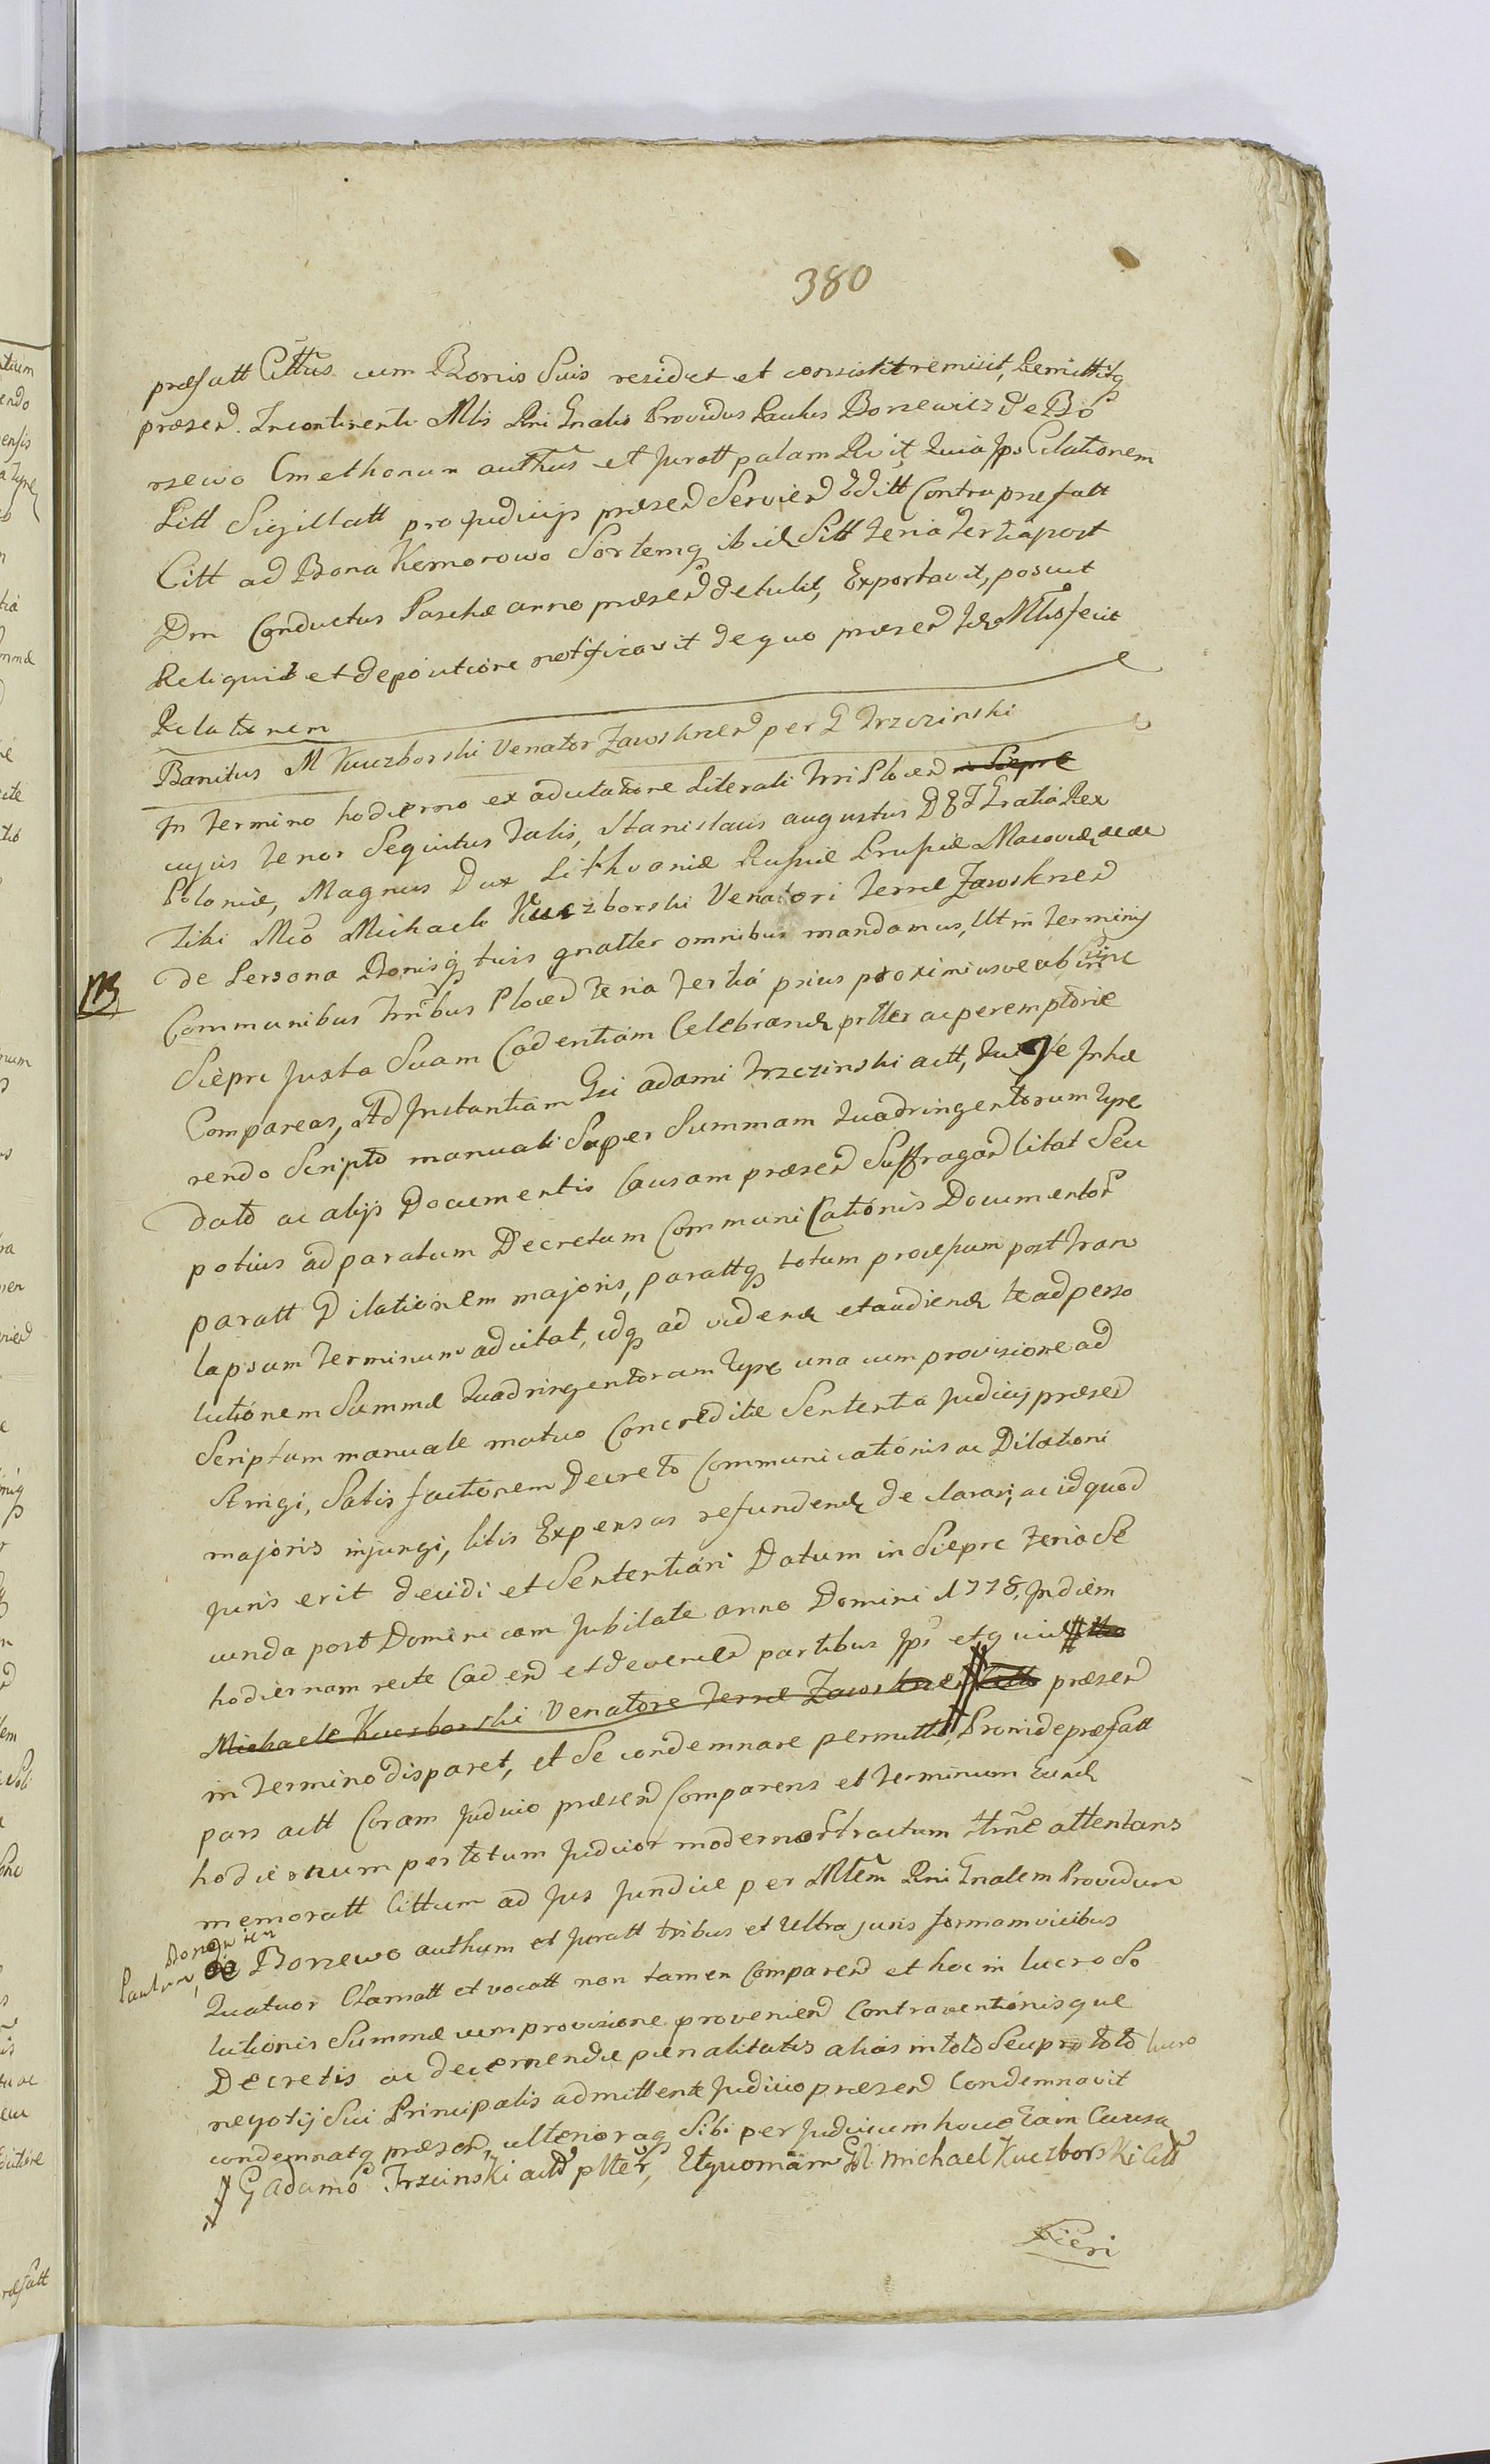 380
præfatt Cittus cum Bonis Suis residet et consistit remisit, Remittitq
præsen. Incontinenti Mlis Rni Gnalis Providus Paulus Borzewicz de Bo
rzewo Cmethonum authus et Juratt palam Rvit, Quia Ips Citationem
Litt Sigillatt pro Judicijs præsen Servien Editt Contra præfatt
Citt ad Bona Komorowo Sortemq ibid Sitt Feria Tertia post
Dm Conductus Paschæ anno præsen detulit, Exportavit, posuit
Reliquit et depoiutione notificavit de quo præsen Idem Mlis fecit
Relationem
Banitus M Kuczborski Venator Zawskrzen per G Trzcinski
In Termino hodierno ex adcitatione Literali Trri Plocen in Siepre
cujus Tenor Sequitus Talis, Stanislaus augustus D G Gratia Rex
Poloniæ, Magnus Dux Lithvaniæ Russiæ Prussiæ Masoviæ &c &c
Tibi Mco Michaeli Kuczborski Venatori Terræ Zawskrzen
de Persona Bonisq tuis gnalter omnibus mandamus, Ut in Terminis
NB
Communibus Trribus Plocen Feria Tertia prius proximius ve ab hinc
Siepre Juxta Suam Cadentiam Celebrand pltter ac peremptorie
Compareas, Ad Instantiam Gsi adami Trzczinski actt, Qui Te Inhæ
rendo Scripto manuali Super Summam Quadringentorum Type
dato ac alijs Documentis Causam præsen Suffragan Citat Seu
potius ad paratum Decretum Communicationis Documentor
paratt Dilationem majoris, parattq totum processum post Tran
lapsum Terminum adcitat, idq ad videnđ et audienđ te ad perso
lutionem Summæ Quadringentorum Type una cum provisione ad
Scriptum manuale mutuo Concreditæ Sententia Judicij præsen
Stringi, Satis factionem Decreto Communicationis ac Dilationi
majoris injungi, litis Expensas refundend declarari, ac id quod
Juris erit decidi et Sententiari Datum in Siepre Feria Se
cunda post Dominicam Jubilate anno Domini 1778, In diem
hodiernam recte Caden et deveniens partibus Ips et quid
Michaele Kuczborski Venatore Terræ Zawskrzen Citto præsen
in Termino disparet, et Se condemnare permittit, Proinde præfatt
pars actt Coram Judicio præsen Comparens et Terminum Eund
hodiernum per totum Judicior modernor tractum Trne attentans
memoratt Cittum ad Jus Jundice per Mltem Rni Gnalem Providum
Paulum Borzewicz
de Borzewo authum et Juratt tribus et Ultra juris formam vicibus
Quatuor Clamatt et vocatt non tamen Comparen et hoc in lucro So
lutionis Summæ cum provisione provenien Contraventionisque
Decretis ac decernendæ pænalitatis alias in toto Seu pro toto lucro
negotij Sui Principalis admittente Judicio præsen Condemnavit
condemnatq præsen, ulterioraq Sibi per Judicium hoc in Ea in Causa
G Adamo Trzcinski actt pltter, Et quoniam G Michael Kuczborski Citt
Fieri